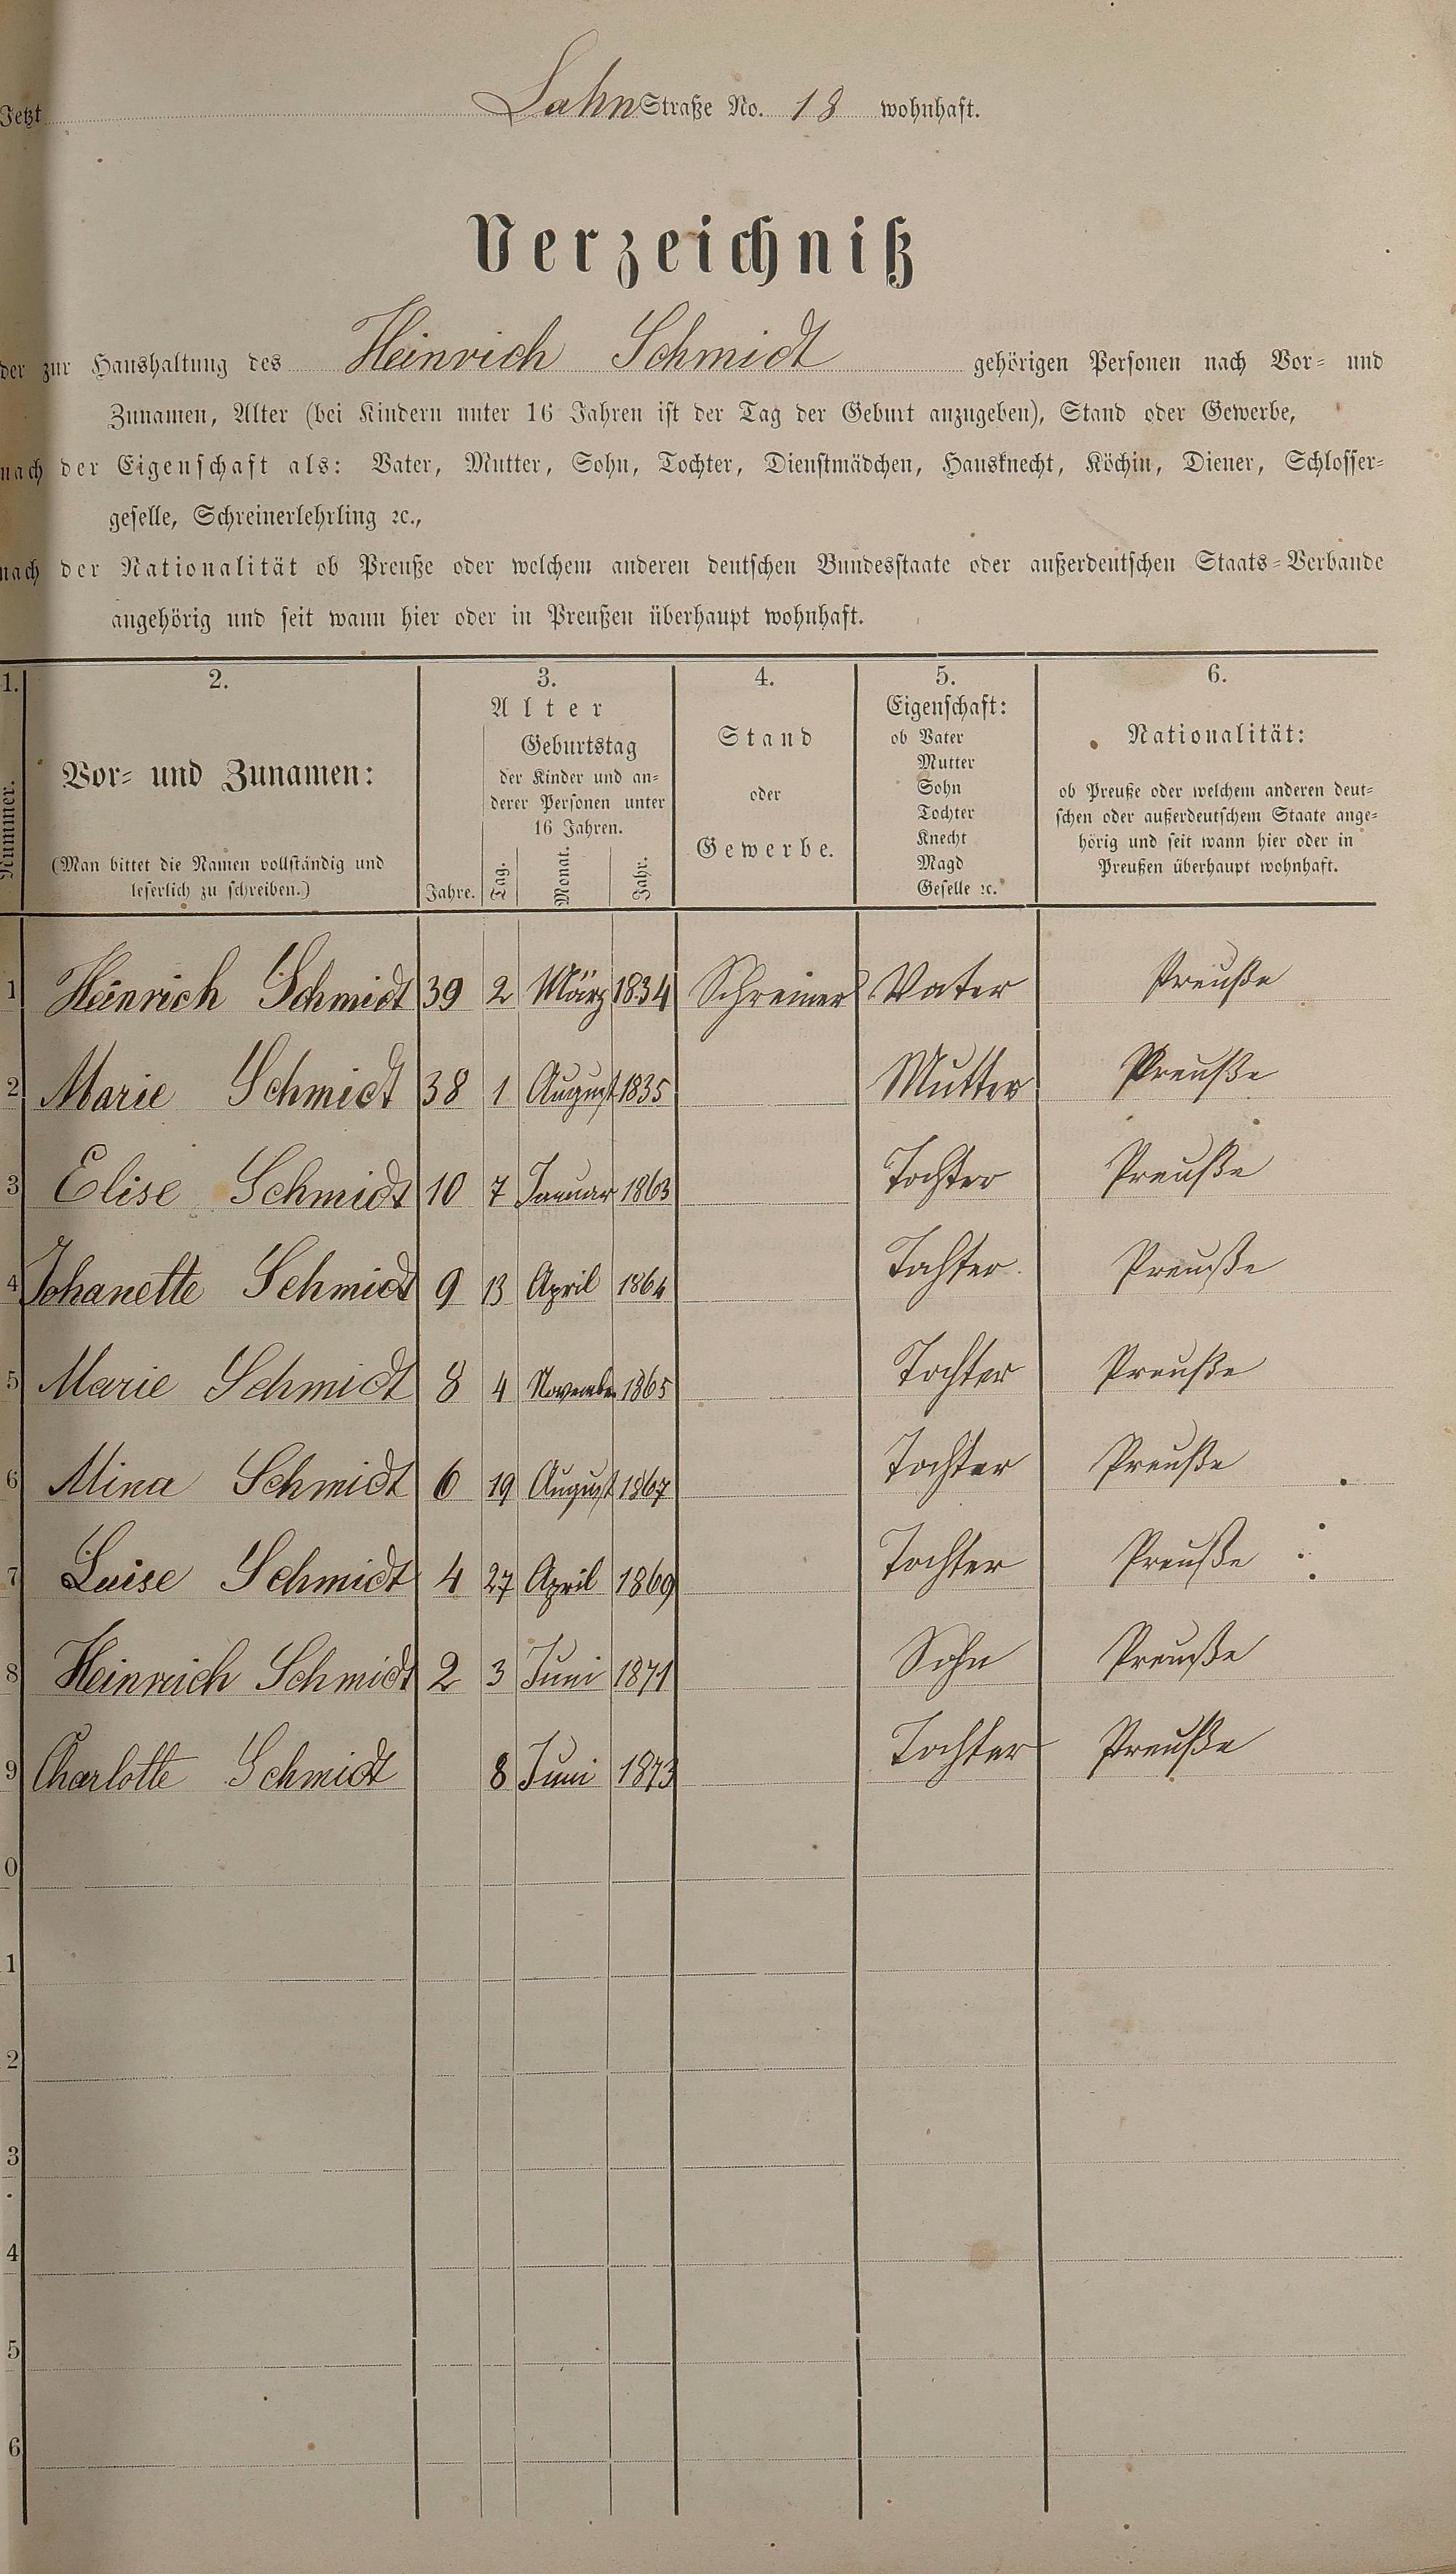 Jetzt Lahn Straße No. 18 wohnhaft.
Verzeichniß
der zur Haushaltung des Heinrich Schmidt gehörigen Personen nach Vor- und
Zunamen, Alter (bei Kindern unter 16 Jahren ist der Tag der Geburt anzugeben), Stand oder Gewerbe,
nach der Eigenschaft als: Vater, Mutter, Sohn, Tochter, Dienstmädchen, Hausknecht, Köchin, Diener, Schlosser-
geselle, Schreinerlehrling ꝛc.,
nach der Nationalität ob Preuße oder welchem anderen deutschen Bundesstaate oder außerdeutschen Staats-Verbande
angehörig und seit wann hier oder in Preußen überhaupt wohnhaft.
1. 2. 3. 4. 5. 6.
Nummer.
Vor- und Zunamen:
(Man bittet die Namen vollständig und
leserlich zu schreiben.)
Alter
Jahre.
Geburtstag
der Kinder und an-
derer Personen unter
16 Jahren.
Tag. Monat. Jahr.
Stand
oder
Gewerbe.
Eigenschaft:
ob Vater
Mutter
Sohn
Tochter
Knecht
Magd
Geselle ꝛc.
Nationalität:
ob Preuße oder welchem anderen deut-
schen oder außerdeutschem Staate ange-
hörig und seit wann hier oder in
Preußen überhaupt wohnhaft.
1 Heinrich Schmidt 39 2 März 1834 Schreiner Vater Preuße
2 Marie Schmidt 38 1 August 1835 Mutter Preuße
3 Elise Schmidt 10 7 Januar 1863 Tochter Preuße
4 Johanette Schmidt 9 13 April 1864 Tochter Preuße
5 Marie Schmidt 8 4 November 1865 Tochter Preuße
6 Mina Schmidt 6 19 August 1867 Tochter Preuße
7 Luise Schmidt 4 27 April 1869 Tochter Preuße
8 Heinrich Schmidt 2 3 Juni 1871 Sohn Preuße
9 Charlotte Schmidt 8 Juni 1873 Tochter Preuße
0
1
2
3
4
5
6